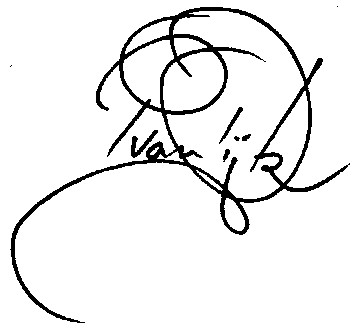 van Dijk